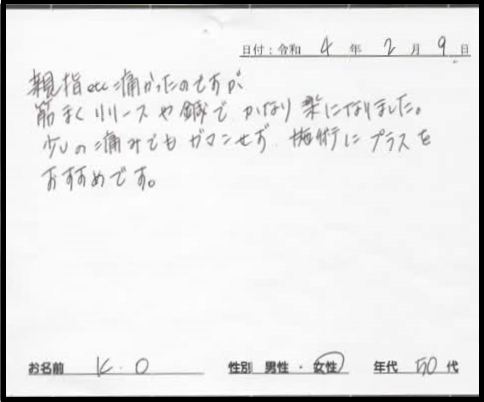 日付：令和 4 年 2 月 9 日
親指が痛かったのですが、
筋まくリリースや鍼でかなり楽になりました。
少しの痛みでもガマンせず 施術にプラスを
おすすめです。
お名前 K.O 性別 男性・女性 年代 50代